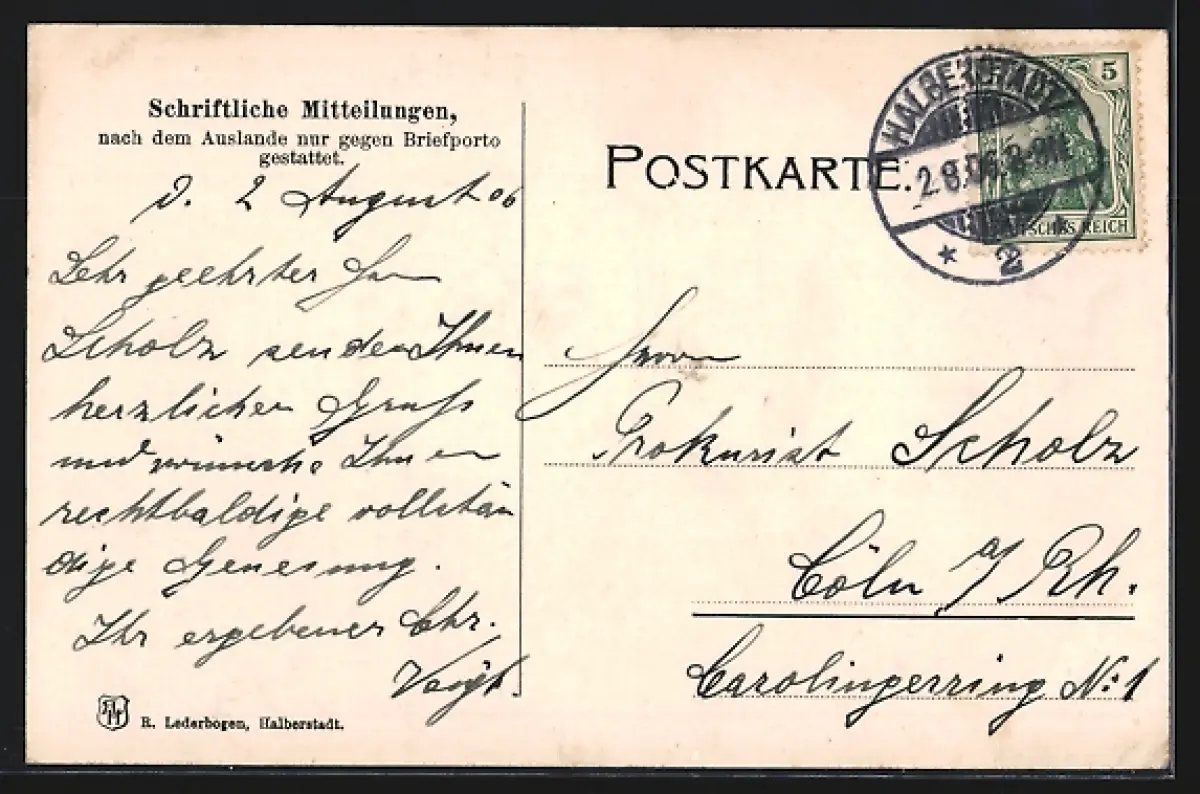 Schriftliche Mitteilungen,
nach dem Auslande nur gegen Briefporto
gestattet.
d. 2 August 06
Sehr geehrter Herr
Scholz senden Ihnen
herzlichen Gruß
und wünsche Ihnen
rechtbaldige vollstän
dige Genesung.
Ihr ergebener Chr.
Voigt.
R. Lederbogen, Halberstadt.
POSTKARTE.
HALBERSTADT
2.8.06. 8-9N
* 2 *
5
DEUTSCHES REICH
Herrn
Prokurist Scholz
Cöln a/Rh.
Carolingerring No 1